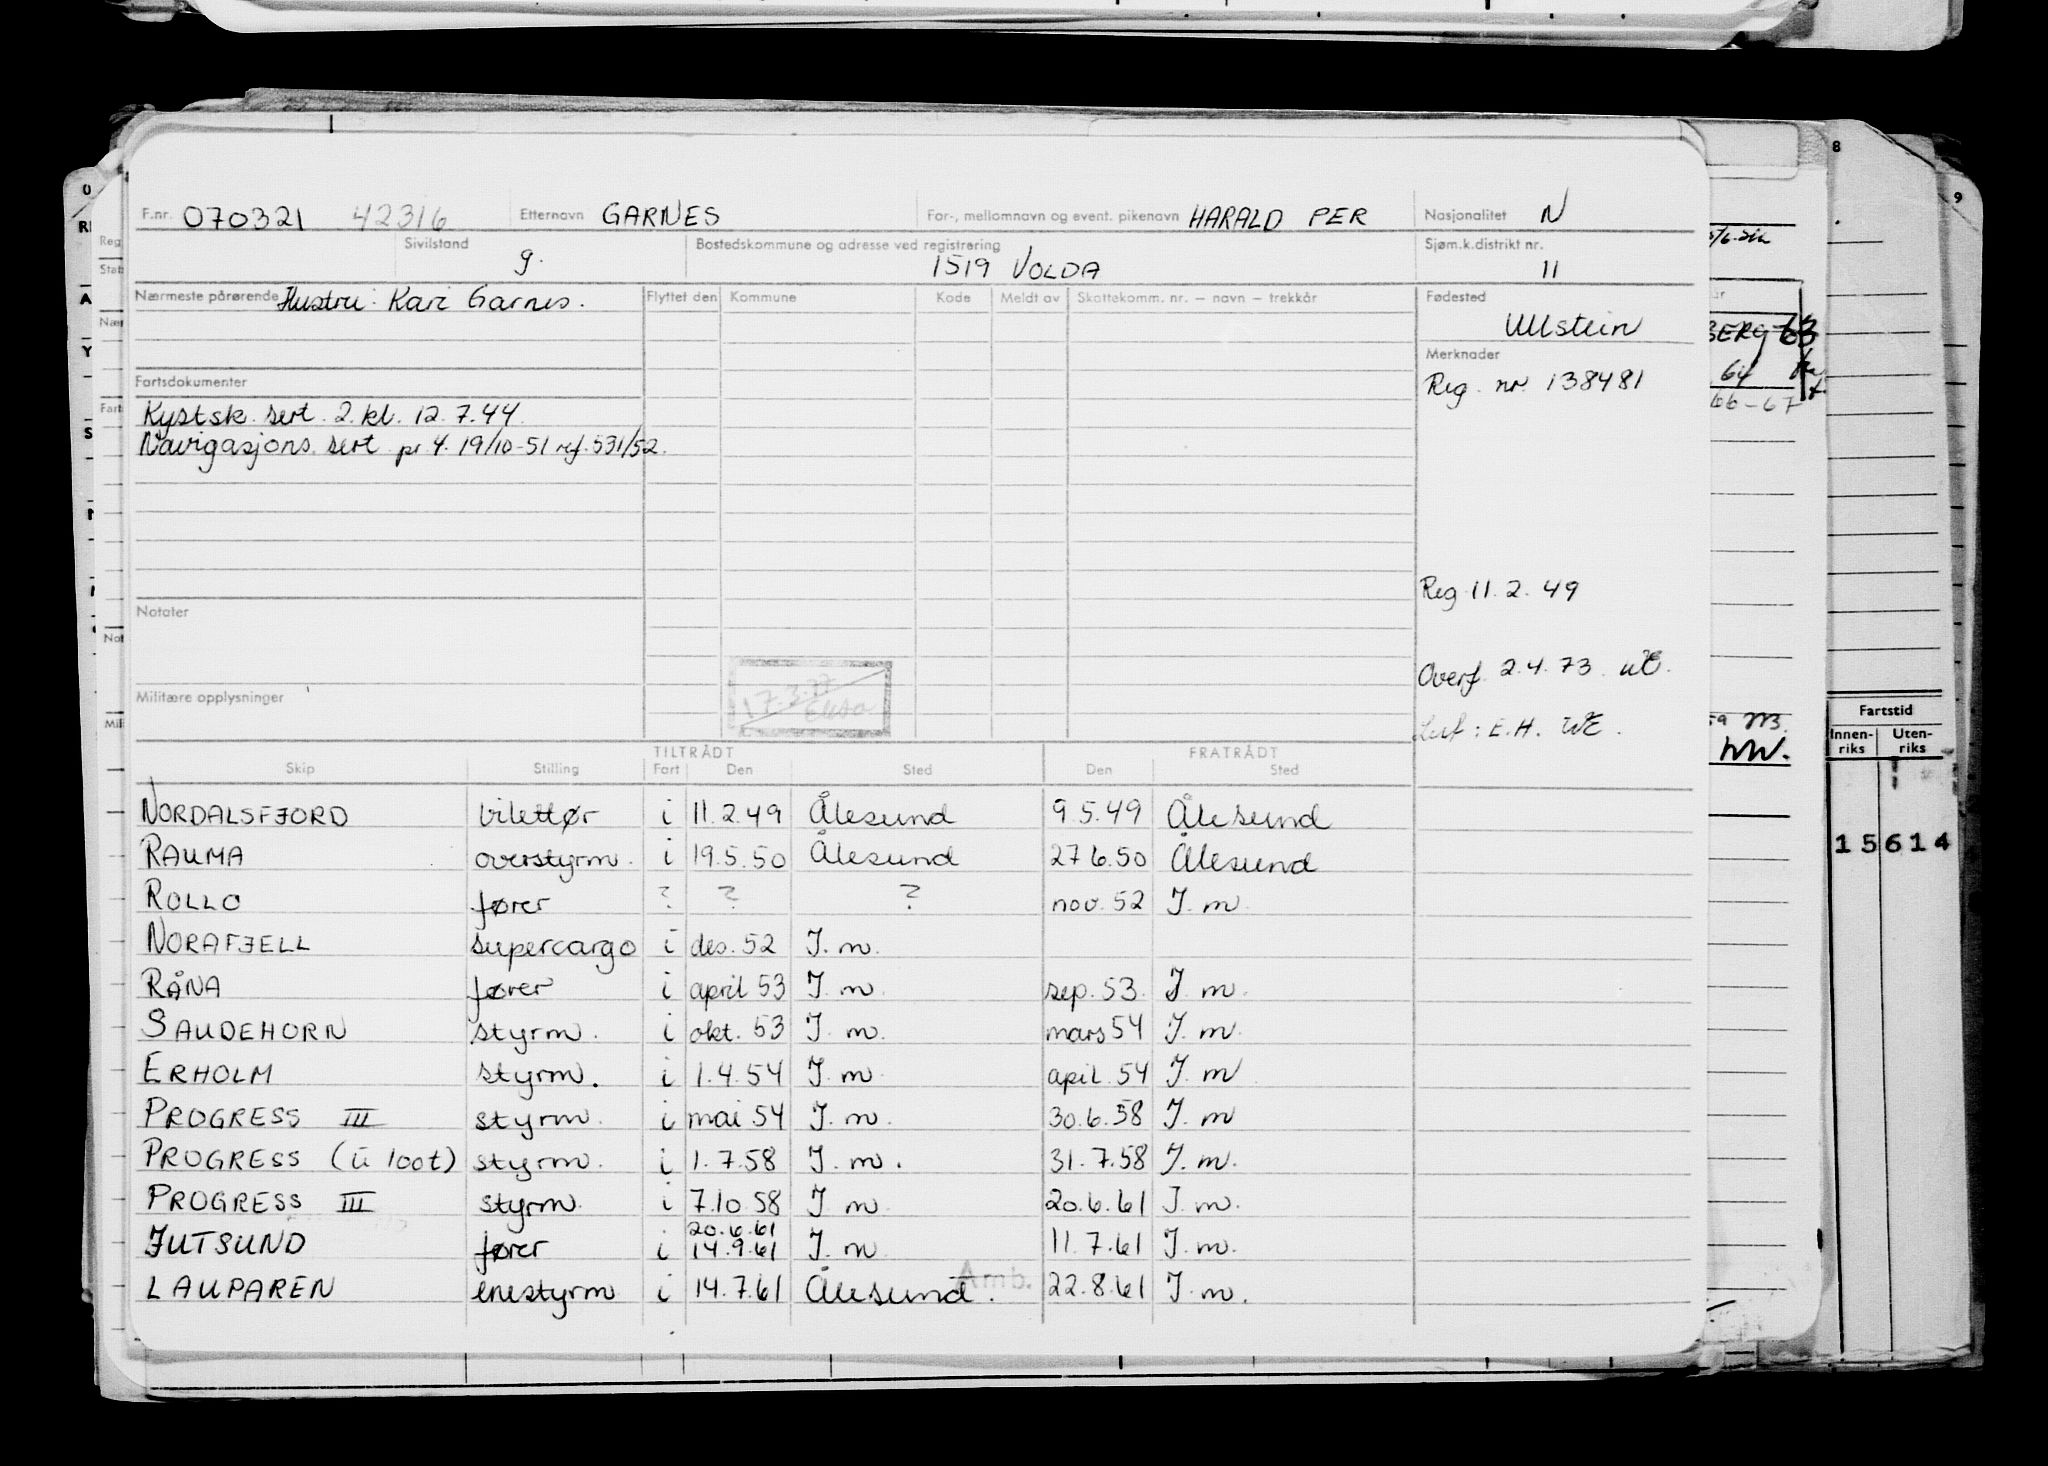 F.nr. 070321 42316 Etternavn GARNES For-, mellomnavn og event. pikenavn HARALD PER Nasjonalitet N
Sivilstand g. Bostedskommune og adresse ved registrering 1519 VOLDA Sjøm.k.distrikt nr. 11
Nærmeste pårørende Hustru: Kari Garnes. Flyttet den Kommune Kode Meldt av Skattekomm. nr. – navn – trekkår Fødested
Ullstein
Merknader
Reg. nr 138481
Fartsdokumenter
Kystsk. sert. 2. kl. 12.7.44
Navigasjons. sert pr 4. 19/10-51 ref. 531/52.
Reg. 11.2.49
Notater
Overf. 2.4.73
Militære opplysninger
17.3.77
: E.H. WE.
TILTRÅDT FRATRÅDT
Skip Stilling Fart Den Sted Den Sted
NORDALSFJORD bilettør i 11.2.49 Ålesund 9.5.49 Ålesund
RAUMA overstyrm. i 19.5.50 Ålesund 27.6.50 Ålesund
ROLLO fører ? ? ? nov. 52 I. m.
NORAFJELL supercargo i des. 52 I. m.
RÅNA fører i april 53 I. m. sep. 53. I. m.
SAUDEHORN styrm. i okt. 53 I. m. mars 54 I. m.
ERHOLM styrm. i 1.4.54 I. m. april. 54 I. m
PROGRESS III styrm. i mai 54 I. m. 30.6.58 I. m
PROGRESS (u 100t) styrm. i 1.7.58 I. m. 31.7.58 I. m.
PROGRESS III styrm. i 7.10.58 I. m 20.6.61 I. m.
20.6.61
JUTSUND fører i 14.9.61 I. m 11.7.61 I. m.
LAUPAREN enestyrm i 14.7.61 Ålesund. Amb. 22.8.61 I. m.
8
9
BERG 63
64
66-67
Fartstid
Innen-
riks
Uten-
riks
15614